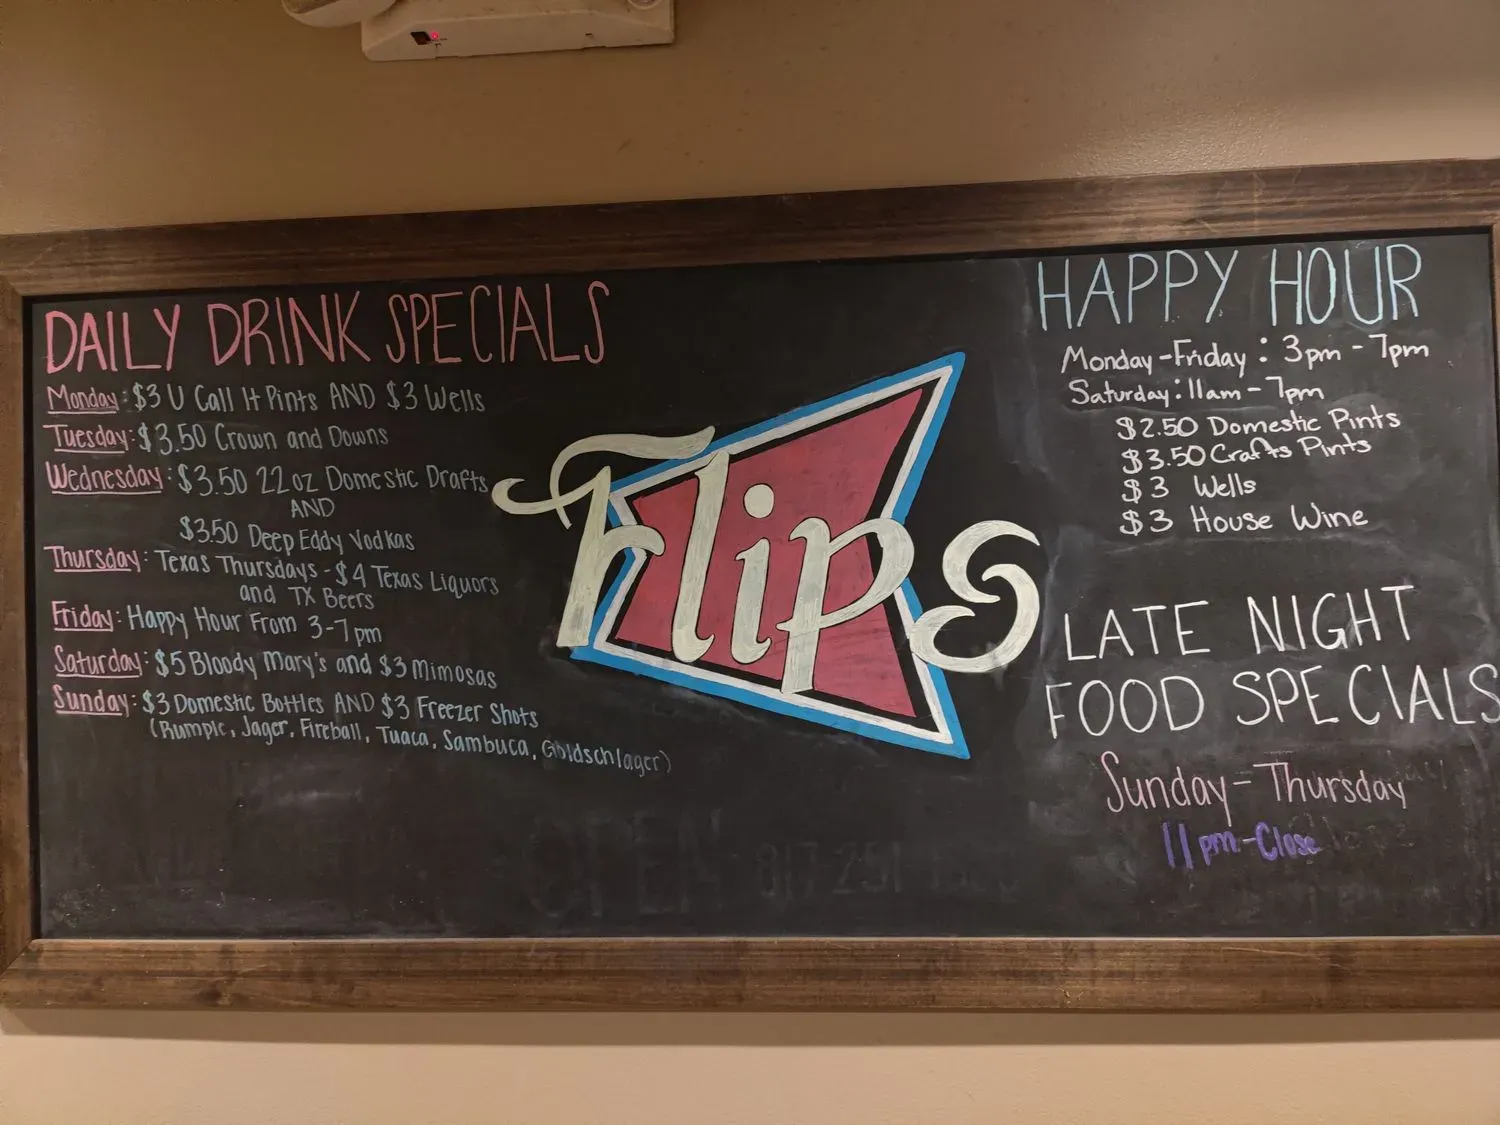 DAILY DRINK SPECIALS
Monday: $3 U Call It Pints AND $3 Wells
Tuesday: $3.50 Crown and Downs
Wednesday: $3.50 22oz Domestic Drafts
AND
$3.50 Deep Eddy Vodkas
Thursday: Texas Thursdays - $4 Texas Liquors
and TX Beers
Friday: Happy Hour From 3-7pm
Saturday: $5 Bloody Mary's and $3 Mimosas
Sunday: $3 Domestic Bottles AND $3 Freezer Shots
(Rumple, Jager, Fireball, Tuaca, Sambuca, Goldschlager)
Flips
HAPPY HOUR
Monday-Friday: 3pm - 7pm
Saturday: 11am - 7pm
$2.50 Domestic Pints
$3.50 Crafts Pints
$3 Wells
$3 House Wine
LATE NIGHT
FOOD SPECIALS
Sunday - Thursday
11pm-Close
OPEN 817 251